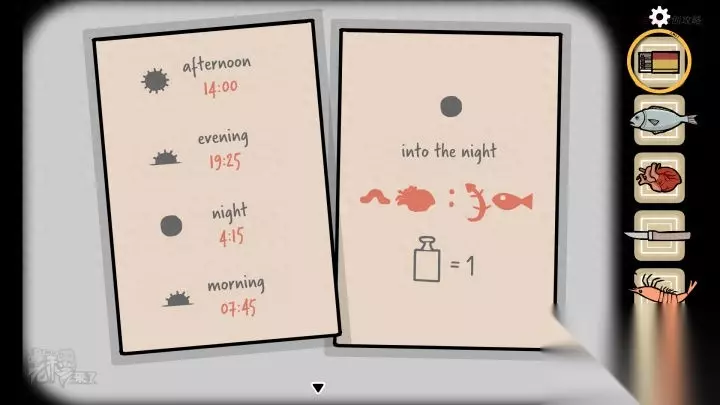 afternoon
14:00
evening
19:25
night
4:15
morning
07:45
into the night
:
= 1
攻略
来了